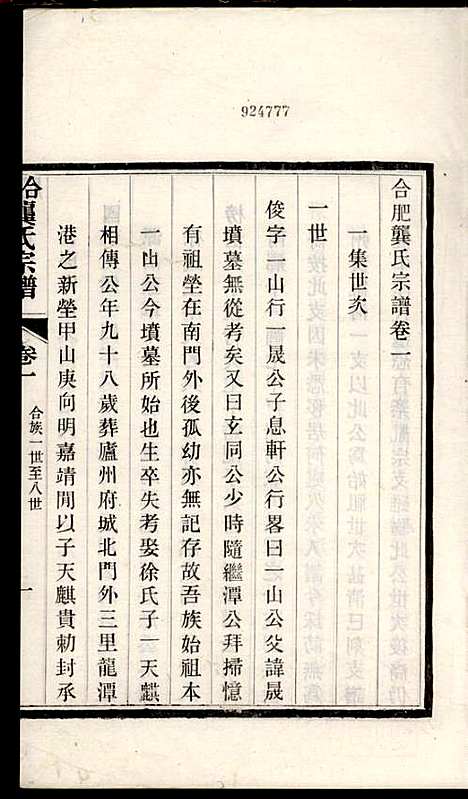 924777
合肥龔氏宗譜卷一
一集世次
一世
俊字一山行一晟公子息軒公行畧曰一山公父諱晟
墳墓無從考矣又曰玄同公少時隨繼潭公拜掃憶
有祖塋在南門外後孤幼亦無記存故吾族始祖本
一山公今墳墓所始也生卒失考娶徐氏子一天麒
相傳公年九十八歲葬廬州府城北門外三里龍潭
港之新塋甲山庚向明嘉靖間以子天麒貴勅封承
合肥龔氏宗譜
卷一
合族一世至八世
一